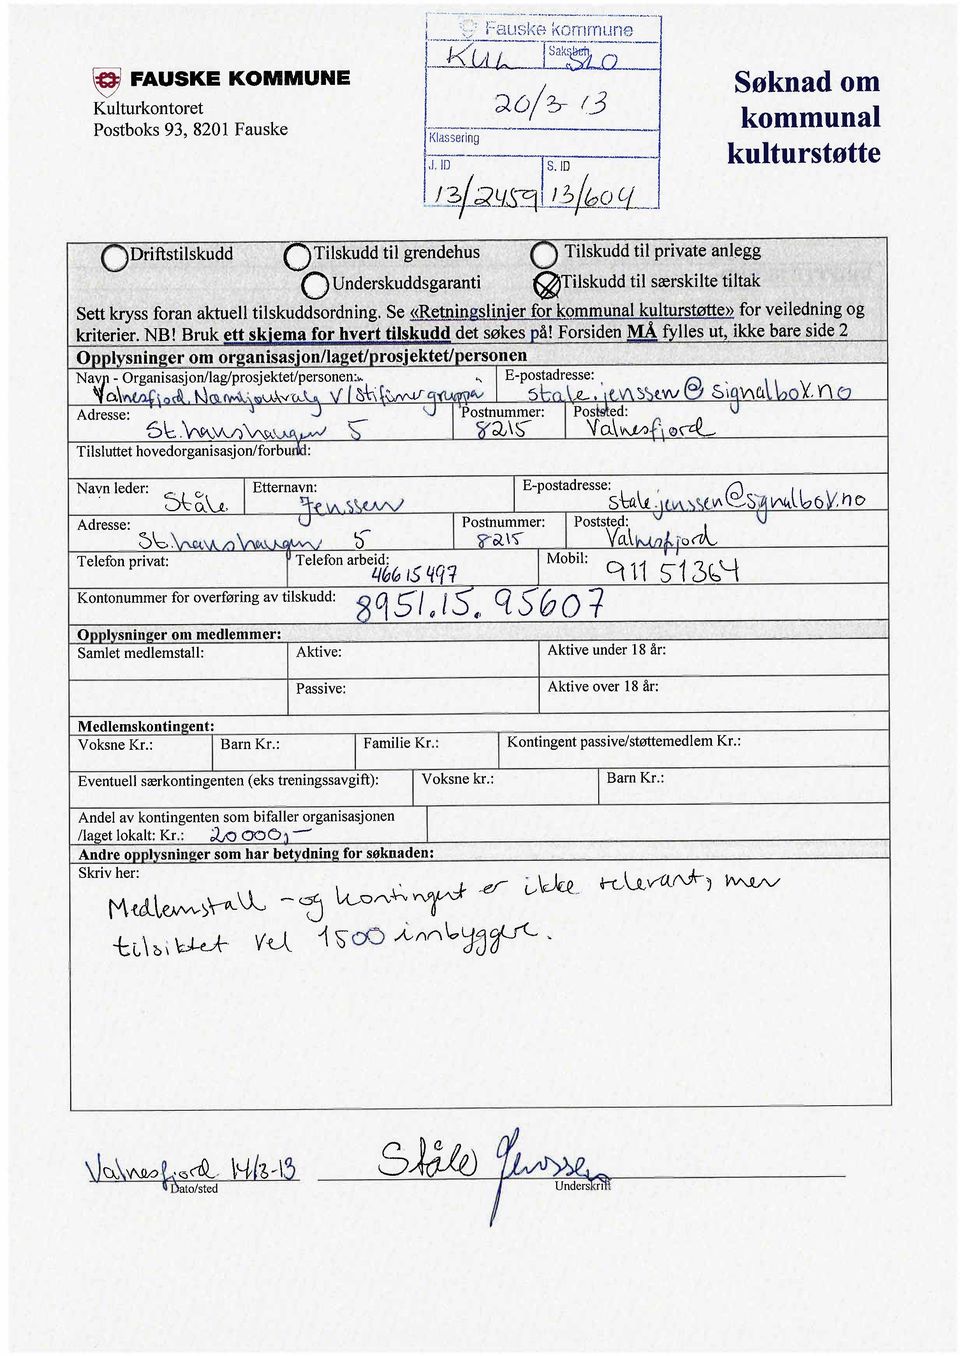 Fauske kommune
KUL Saksbeh. SLO
20/3-13
Klassering
J. ID S. ID
13/2459 13/604
FAUSKE KOMMUNE
Kulturkontoret
Postboks 93, 8201 Fauske
Søknad om
kommunal
kulturstøtte
Driftstilskudd Tilskudd til grendehus Tilskudd til private anlegg
Underskuddsgaranti Tilskudd til særskilte tiltak
Sett kryss foran aktuell tilskuddsordning. Se «Retningslinjer for kommunal kulturstøtte» for veiledning og
kriterier. NB! Bruk ett skjema for hvert tilskudd det søkes på! Forsiden MÅ fylles ut, ikke bare side 2
Opplysninger om organisasjon/laget/prosjektet/personen
Navn - Organisasjon/lag/prosjektet/personen: E-postadresse:
Valnesfjord Nærmiljøutvalg v/Stifinnergruppa stale.jenssen@signalbox.no
Adresse: Postnummer: Poststed:
St.hanshaugen 5 8215 Valnesfjord
Tilsluttet hovedorganisasjon/forbund:
Navn leder: Etternavn: E-postadresse:
Ståle Jenssen stale.jenssen@signalbox.no
Adresse: Postnummer: Poststed:
St.hanshaugen 5 8215 Valnesfjord
Telefon privat: Telefon arbeid: Mobil:
46615497 911 51364
Kontonummer for overføring av tilskudd: 8951.15.95607
Opplysninger om medlemmer:
Samlet medlemstall: Aktive: Aktive under 18 år:
Passive: Aktive over 18 år:
Medlemskontingent:
Voksne Kr.: Barn Kr.: Familie Kr.: Kontingent passive/støttemedlem Kr.:
Eventuell særkontingenten (eks treningssavgift): Voksne kr.: Barn Kr.:
Andel av kontingenten som bifaller organisasjonen
/laget lokalt: Kr.: 20 000,-
Andre opplysninger som har betydning for søknaden:
Skriv her:
Medlemstall - og kontingent er ikke relevant, men
tilsiktet vel 1500 innbyggere.
Valnesfjord 14/3-13 Ståle Jenssen
Dato/sted Underskrift